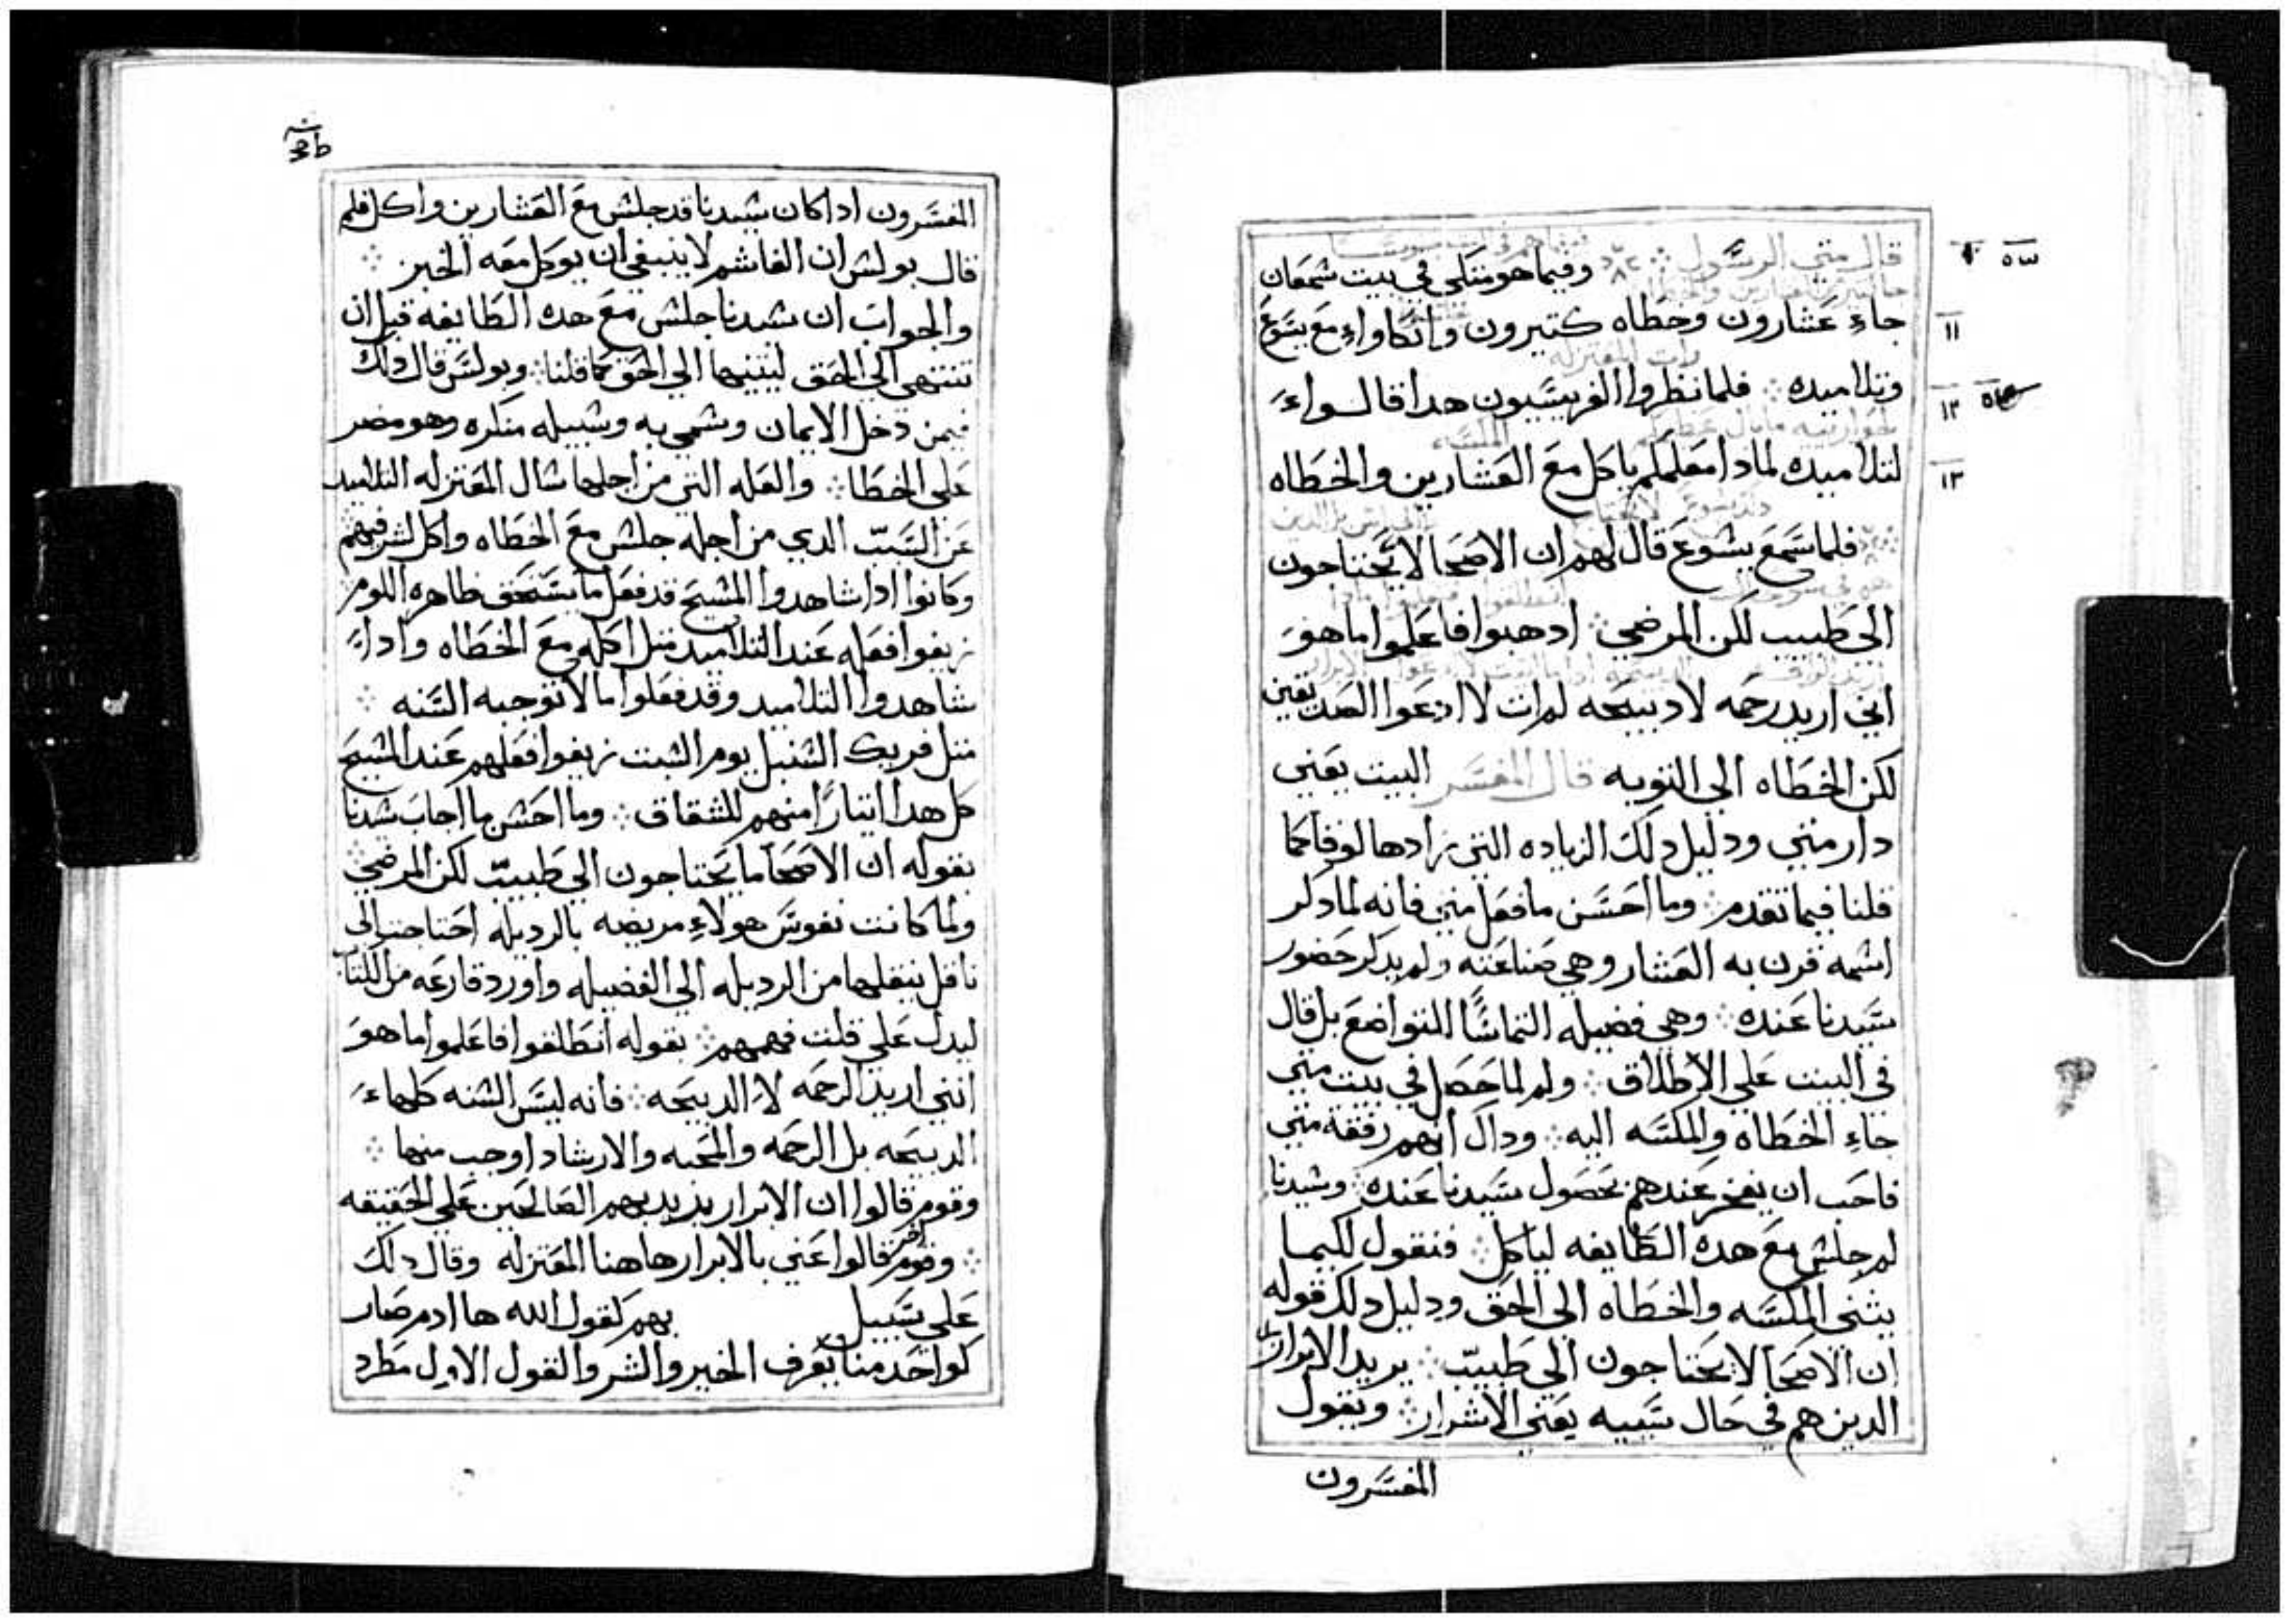 قال متي الرسول وفيما هو متكي في بيت شمعان
جاءِ عشارون وخطاه كتيرون واتكاواءِ مع يسوع
وتلاميده فلما نظروا الفريسيون هدا قالواء
لتلاميده لمادا معلمكم ياكل مع العشارين والخطاه
فلما سمع يشوع قال لهم ان الاصحا لا يحتاجون
الي طبيب لكن المرضي ادهبوا فاعلموا ما هو
اني اريد رحمه لا دبيحه لم ات لاادعوا الصديقين
لكن الخطاه الي التوبه قال المفسر البيت يعني
دار متي ودليل دلك الزياده التي زادها لوقا كما
قلنا فيما تقدم وما احسن ما فعل متي فانه لما دكر
اسمه قرن به العشار وهي صناعته ولم يدكر حضور
سيدنا عنده وهي فضيله التماسًا للتواضع بل قال
في البيت علي الاطلاق ولم لما حصل في بيت متي
جاءِ الخطاه والمكسه اليه وداك انهم رفقة متي
فاحب ان يفخر عندهم بحصول سيدنا عنده وشيدنا
لم جلش مع هده الطايفه لياكل فنقول لكيما
يثني المكسه والخطاه الي الحق ودليل دلك قوله
ان الاصحا لا يحتاجون الي طبيب يريد الابرار
الدين هم في حال سيبه يعني الاشرار ويقول
المفسرون
٥٣ ١٠
١١
١٢
١٣
المفسرون ادا كان شيدنا قد جلش مع العشارين واكل فلم
قال بولش ان الغاشم لا ينبغي ان يوكل معه الخبز
والجواب ان شيدنا جلش مع هده الطايفه قبل ان
تنتهي الي الحق ليثنيها الي الحق كما قلنا وبولس قال داك
فيمن دخل الايمان وشمي به وشبيله منكره وهو مصر
علي الخطا والعله التي من اجلها شال المعتزله التلاميد
عن السبب الدي من اجله جلش مع الخطاه واكل لشر فيهم
وكانوا ادا شاهدوا المشيح قد فعل ما يستحق ظاهره اللوم
زيفوا فعله عند التلاميد متل اكله مع الخطاه وادا
شاهدوا التلاميد وقد فعلوا ما لا توجبه السنه
متل فريك الشنبل يوم الشبت زيفوا فعلهم عند المشيح
كل هدا ايتارًا منهم للشقاق وما احشن ما اجاب شيدنا
بقوله ان الاصحا ما يحتاجون الي طبيب لكن المرضي
ولما كانت نفوس هولاءِ مريضه بالرديله احتاجت الي
ناقل ينقلها من الرديله الي الفضيله واورد قارعه من الكتاب
ليدل علي قلت فهمهم بقوله انطلقوا فاعلموا ما هو
انني اريد الرحمه لا الدبيحه فانه ليس الشنه كلها
الدبيحه بل الرحمه والمحبه والارشاد اوجب منها
وقوم قالوا ان الابرار يريد بهم الصالحين علي الحقيقه
وقوم اخر قالوا عني بالابرار هاهنا المعتزله وقال دلك
علي سبيل بهم كقول الله ها ادم صار
كواحد منا يعرف الخير والشر والقول الاول مطرد